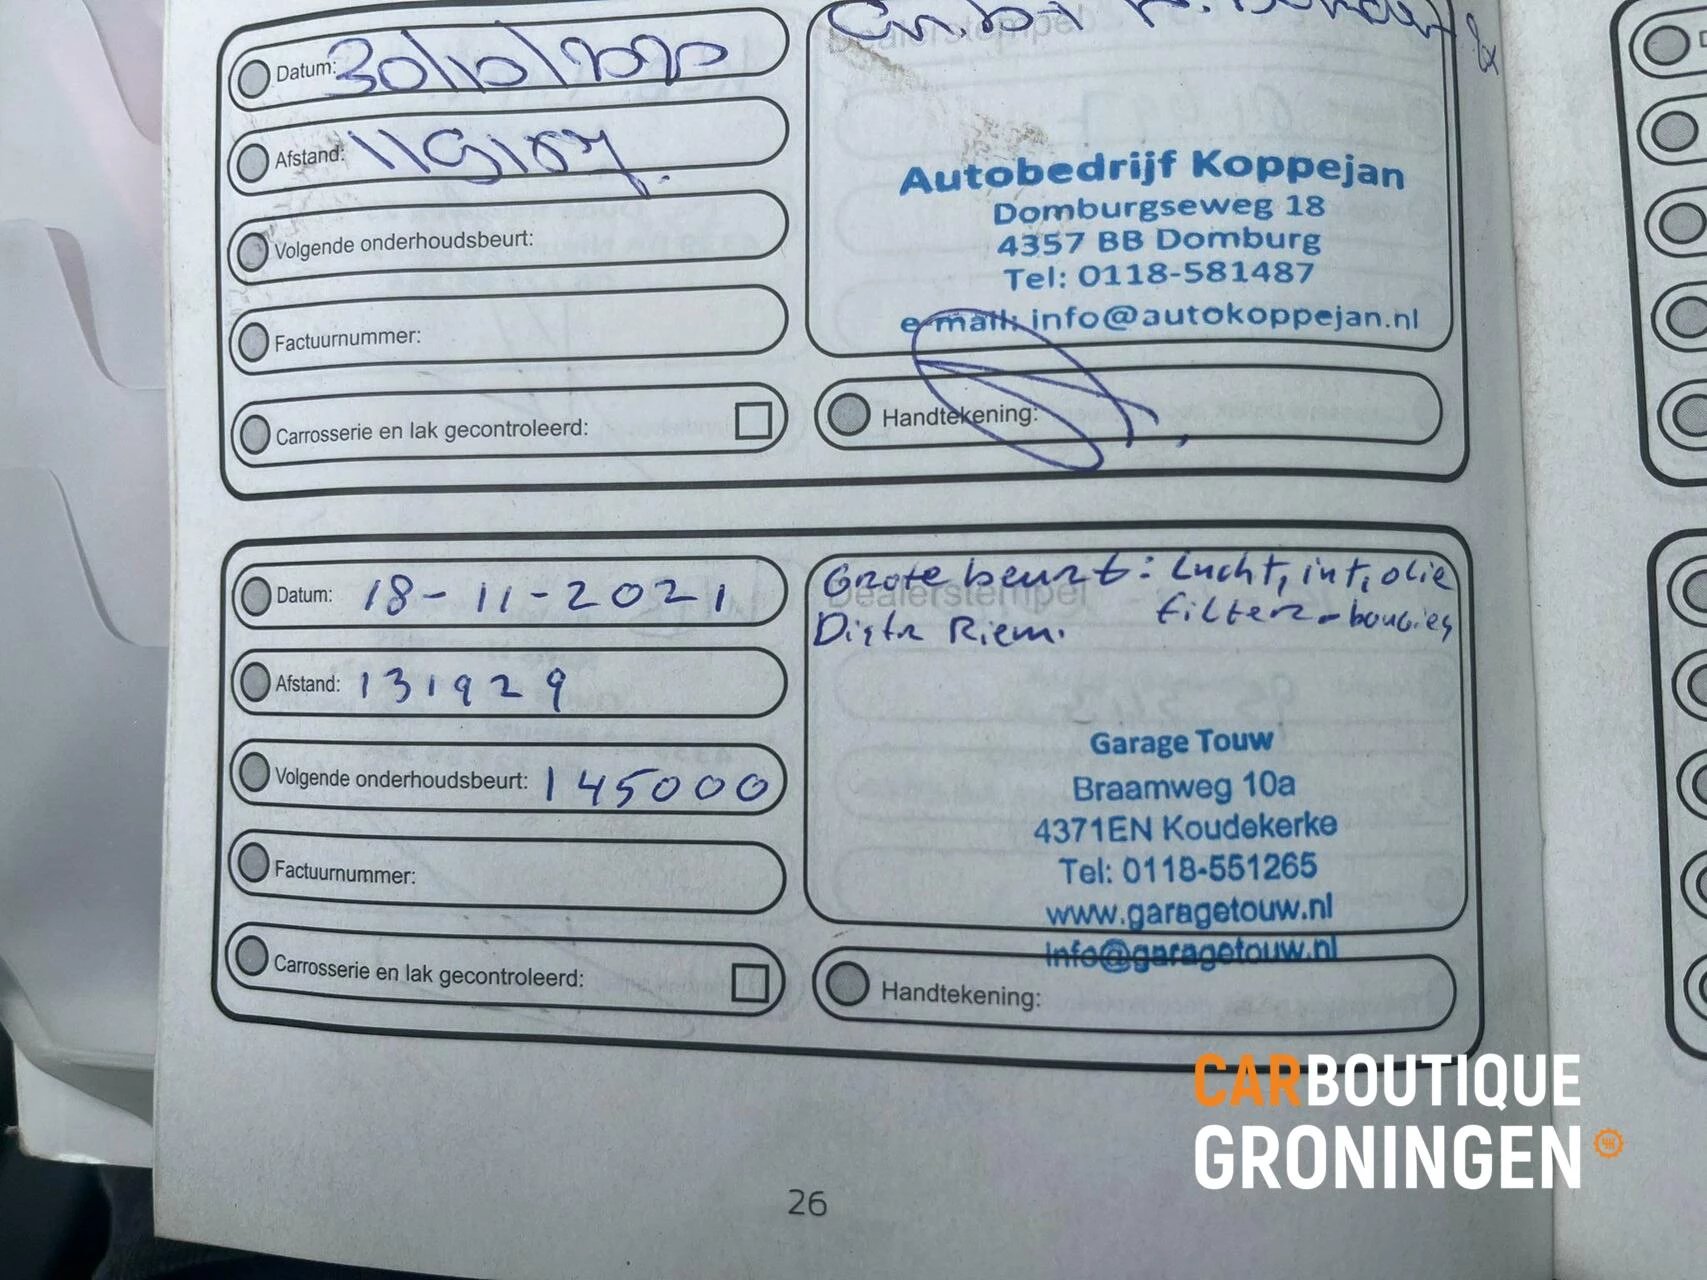 Datum: 30/10/2020
Afstand:
Volgende onderhoudsbeurt:
Factuurnummer:
Carrosserie en lak gecontroleerd:
Dealerstempel
Autobedrijf Koppejan
Domburgseweg 18
4357 BB Domburg
Tel: 0118-581487
e-mail: info@autokoppejan.nl
Handtekening:
Datum: 18-11-2021
Afstand: 131929
Volgende onderhoudsbeurt: 145000
Factuurnummer:
Carrosserie en lak gecontroleerd:
Dealerstempel
Grote beurt: Lucht, int, olie
filter - bougies
Distr Riem.
Garage Touw
Braamweg 10a
4371EN Koudekerke
Tel: 0118-551265
www.garagetouw.nl
info@garagetouw.nl
Handtekening:
CARBOUTIQUE
GRONINGEN
26